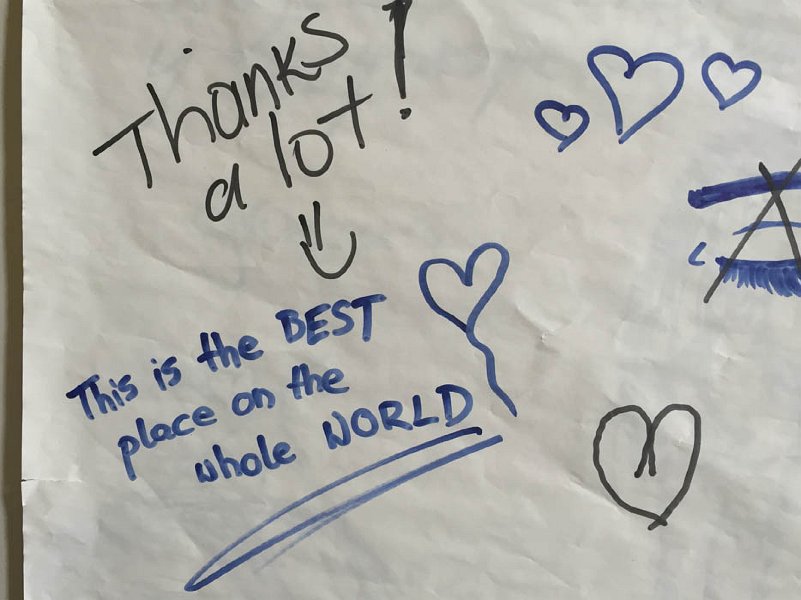 Thanks
a lot!
This is the BEST
place on the
whole WORLD